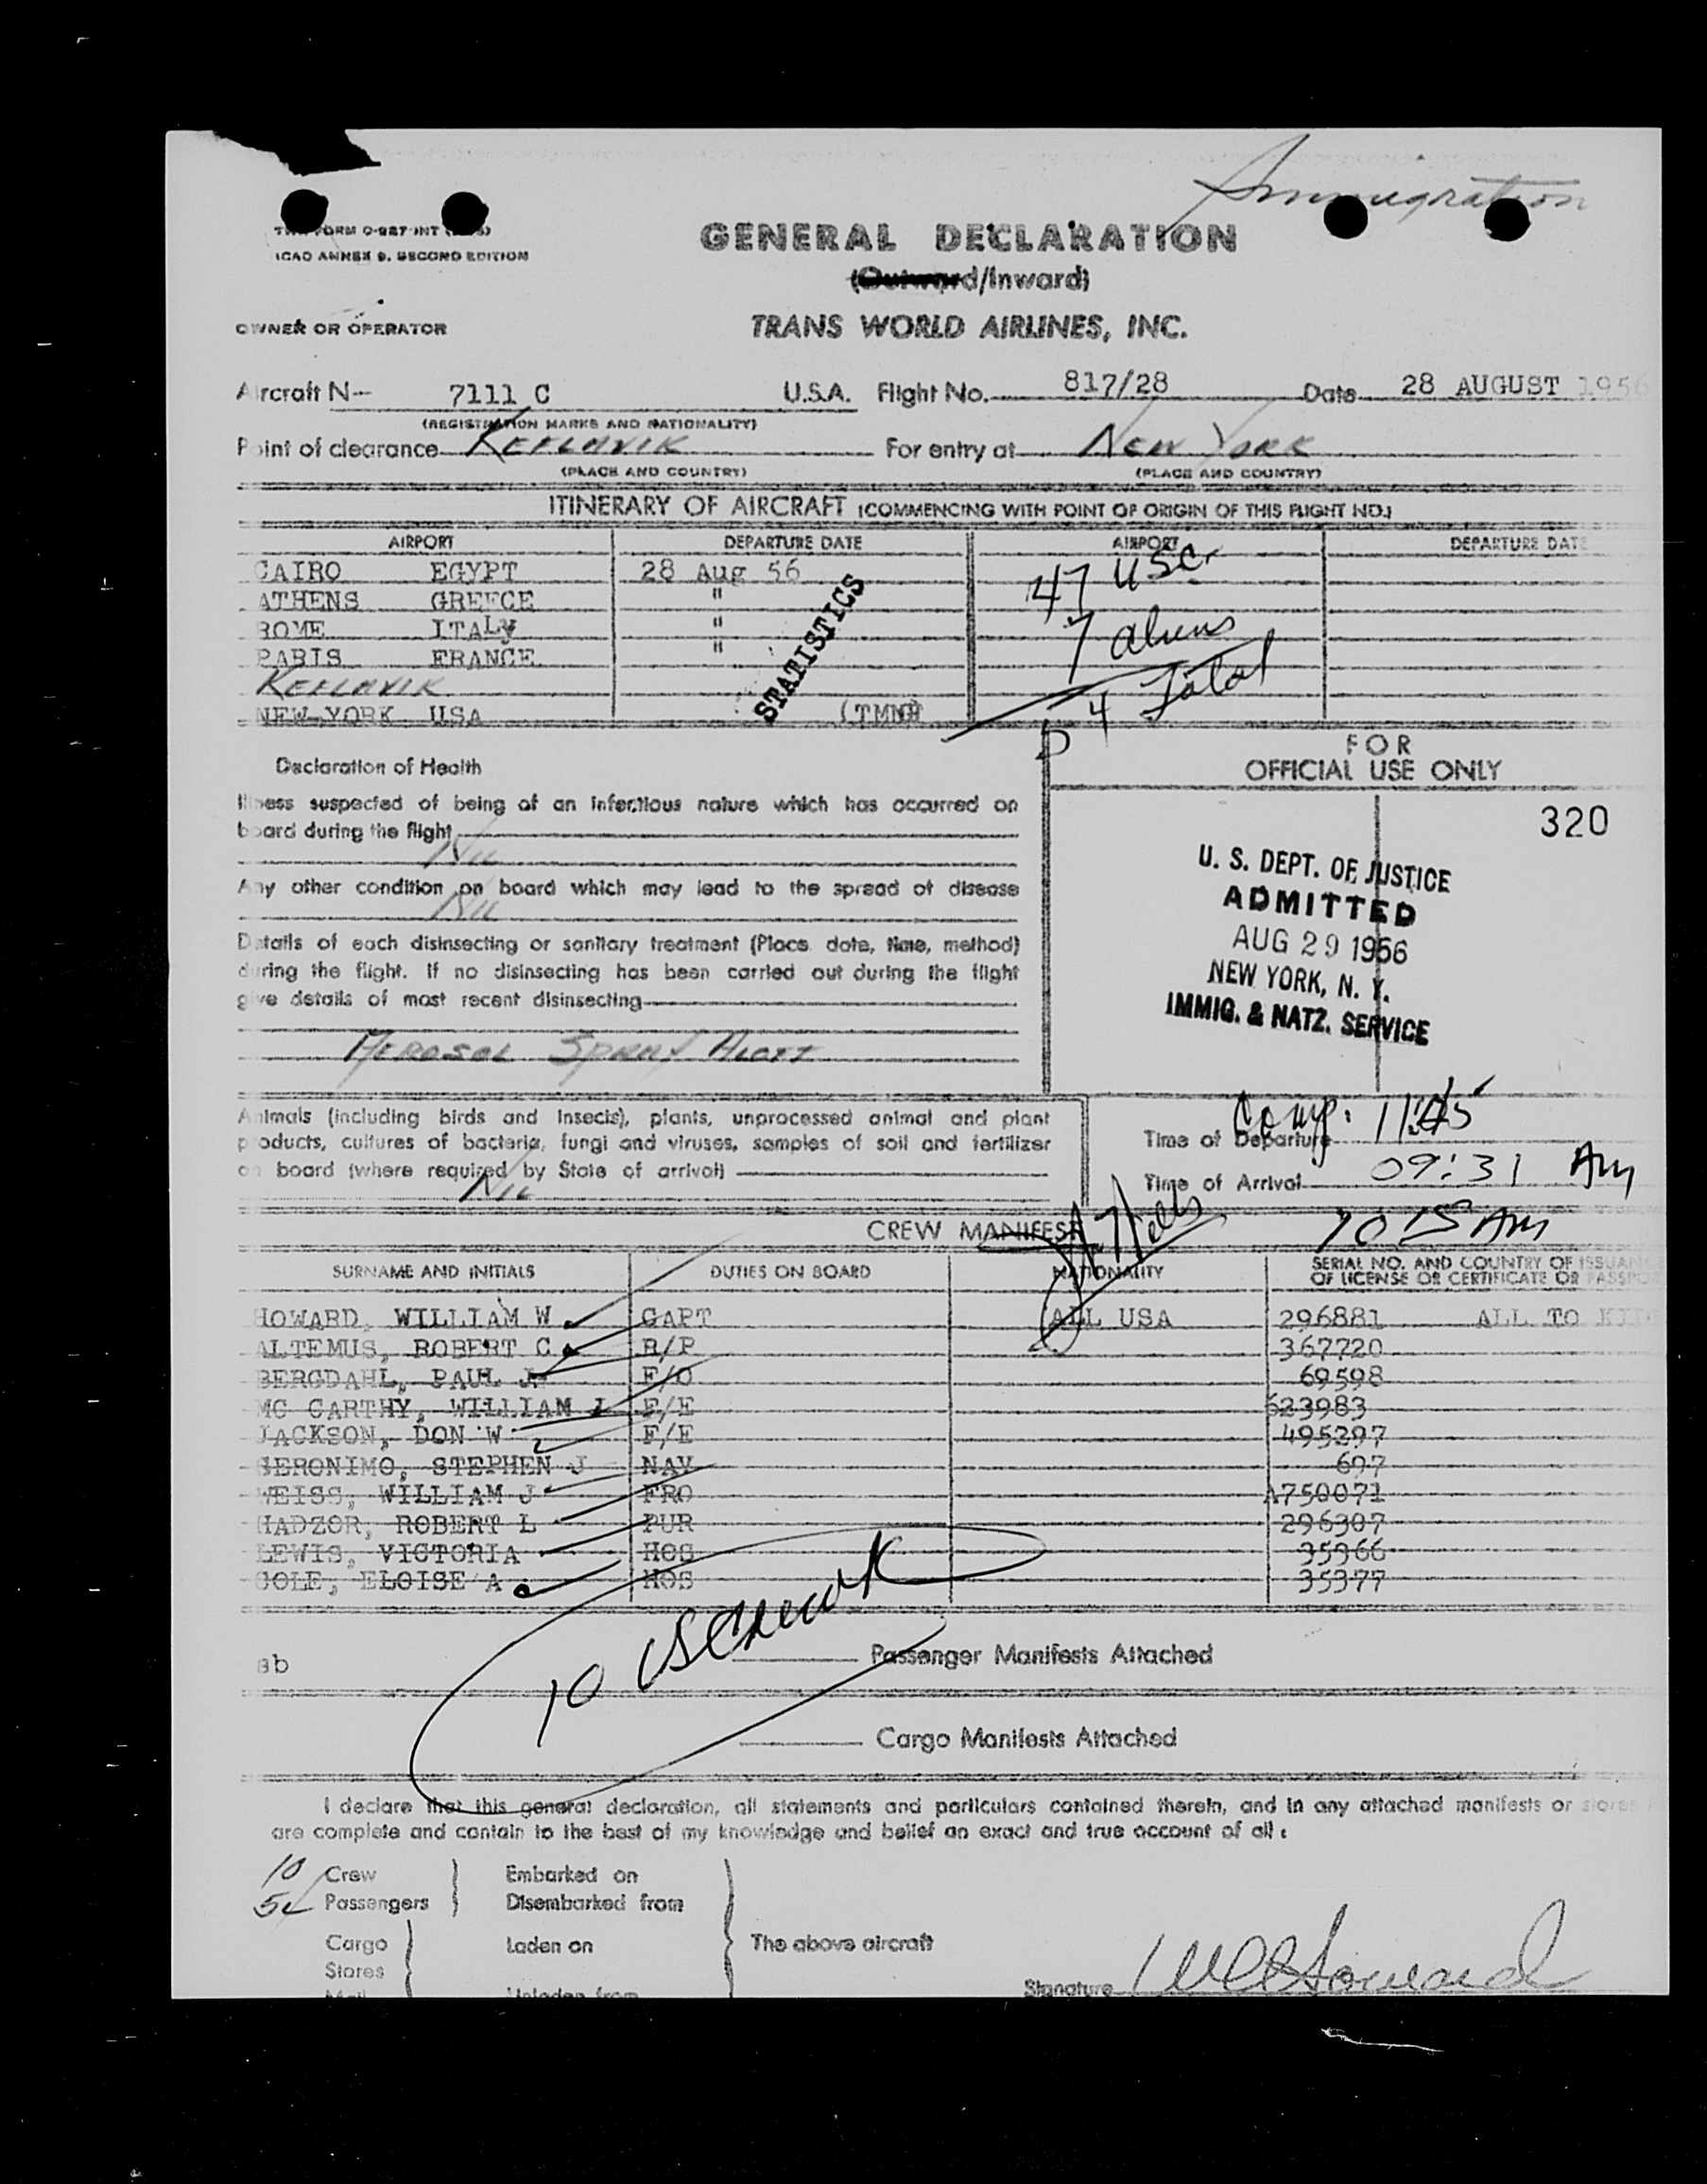 Immigration
TWA FORM O-987 INT
ICAO ANNEX 9, SECOND EDITION
GENERAL DECLARATION
(Outward/Inward)
OWNER OR OPERATOR TRANS WORLD AIRLINES, INC.
Aircraft N-- 7111 C U.S.A. Flight No. 817/28 Date 28 AUGUST 1956
(REGISTRATION MARKS AND NATIONALITY)
Point of clearance KEFLAVIK For entry at NEW YORK
(PLACE AND COUNTRY) (PLACE AND COUNTRY)
ITINERARY OF AIRCRAFT (COMMENCING WITH POINT OF ORIGIN OF THIS FLIGHT NO.)
AIRPORT DEPARTURE DATE AIRPORT DEPARTURE DATE
CAIRO EGYPT 28 Aug 56 47 USC
ATHENS GREECE "
ROME ITALY " 7 aliens
PARIS FRANCE "
KEFLAVIK 54 Total
NEW YORK USA (TMN)
STATISTICS
FOR
OFFICIAL USE ONLY
320
U. S. DEPT. OF JUSTICE
ADMITTED
AUG 29 1956
NEW YORK, N. Y.
IMMIG. & NATZ. SERVICE
Declaration of Health
Illness suspected of being of an infectious nature which has occurred on
board during the flight
Nil
Any other condition on board which may lead to the spread of disease
Nil
Details of each disinsecting or sanitary treatment (Place, date, time, method)
during the flight. If no disinsecting has been carried out during the flight
give details of most recent disinsecting
AEROSOL SPRAY
Animals (including birds and insects), plants, unprocessed animal and plant
products, cultures of bacteria, fungi and viruses, samples of soil and fertilizer
on board (where required by State of arrival)
Nil
Comp: 11:45
Time of Departure
Time of Arrival 09:31 AM
10 15 AM
CREW MANIFEST
SURNAME AND INITIALS DUTIES ON BOARD NATIONALITY SERIAL NO. AND COUNTRY OF ISSUANCE
OF LICENSE OR CERTIFICATE OR PASSPORT
HOWARD, WILLIAM W CAPT ALL USA 296881 ALL TO
ALTEMUS, ROBERT C R/P 367720
BERGDAHL, PAUL J F/O 69598
MC CARTHY, WILLIAM J F/E 623983
JACKSON, DON W F/E 495297
GERONIMO, STEPHEN J NAV 697
WEISS, WILLIAM J FRO A750071
HADZOR, ROBERT L PUR 296307
LEWIS, VICTORIA HOS 35366
COLE, ELOISE A HOS 35377
10 USCrew
ab Passenger Manifests Attached
Cargo Manifests Attached
I declare that this general declaration, all statements and particulars contained therein, and in any attached manifests or stores
are complete and contain to the best of my knowledge and belief an exact and true account of all:
10 Crew Embarked on
54 Passengers Disembarked from
Cargo Laden on The above aircraft
Stores
Mail Unladen from Signature WW Howard